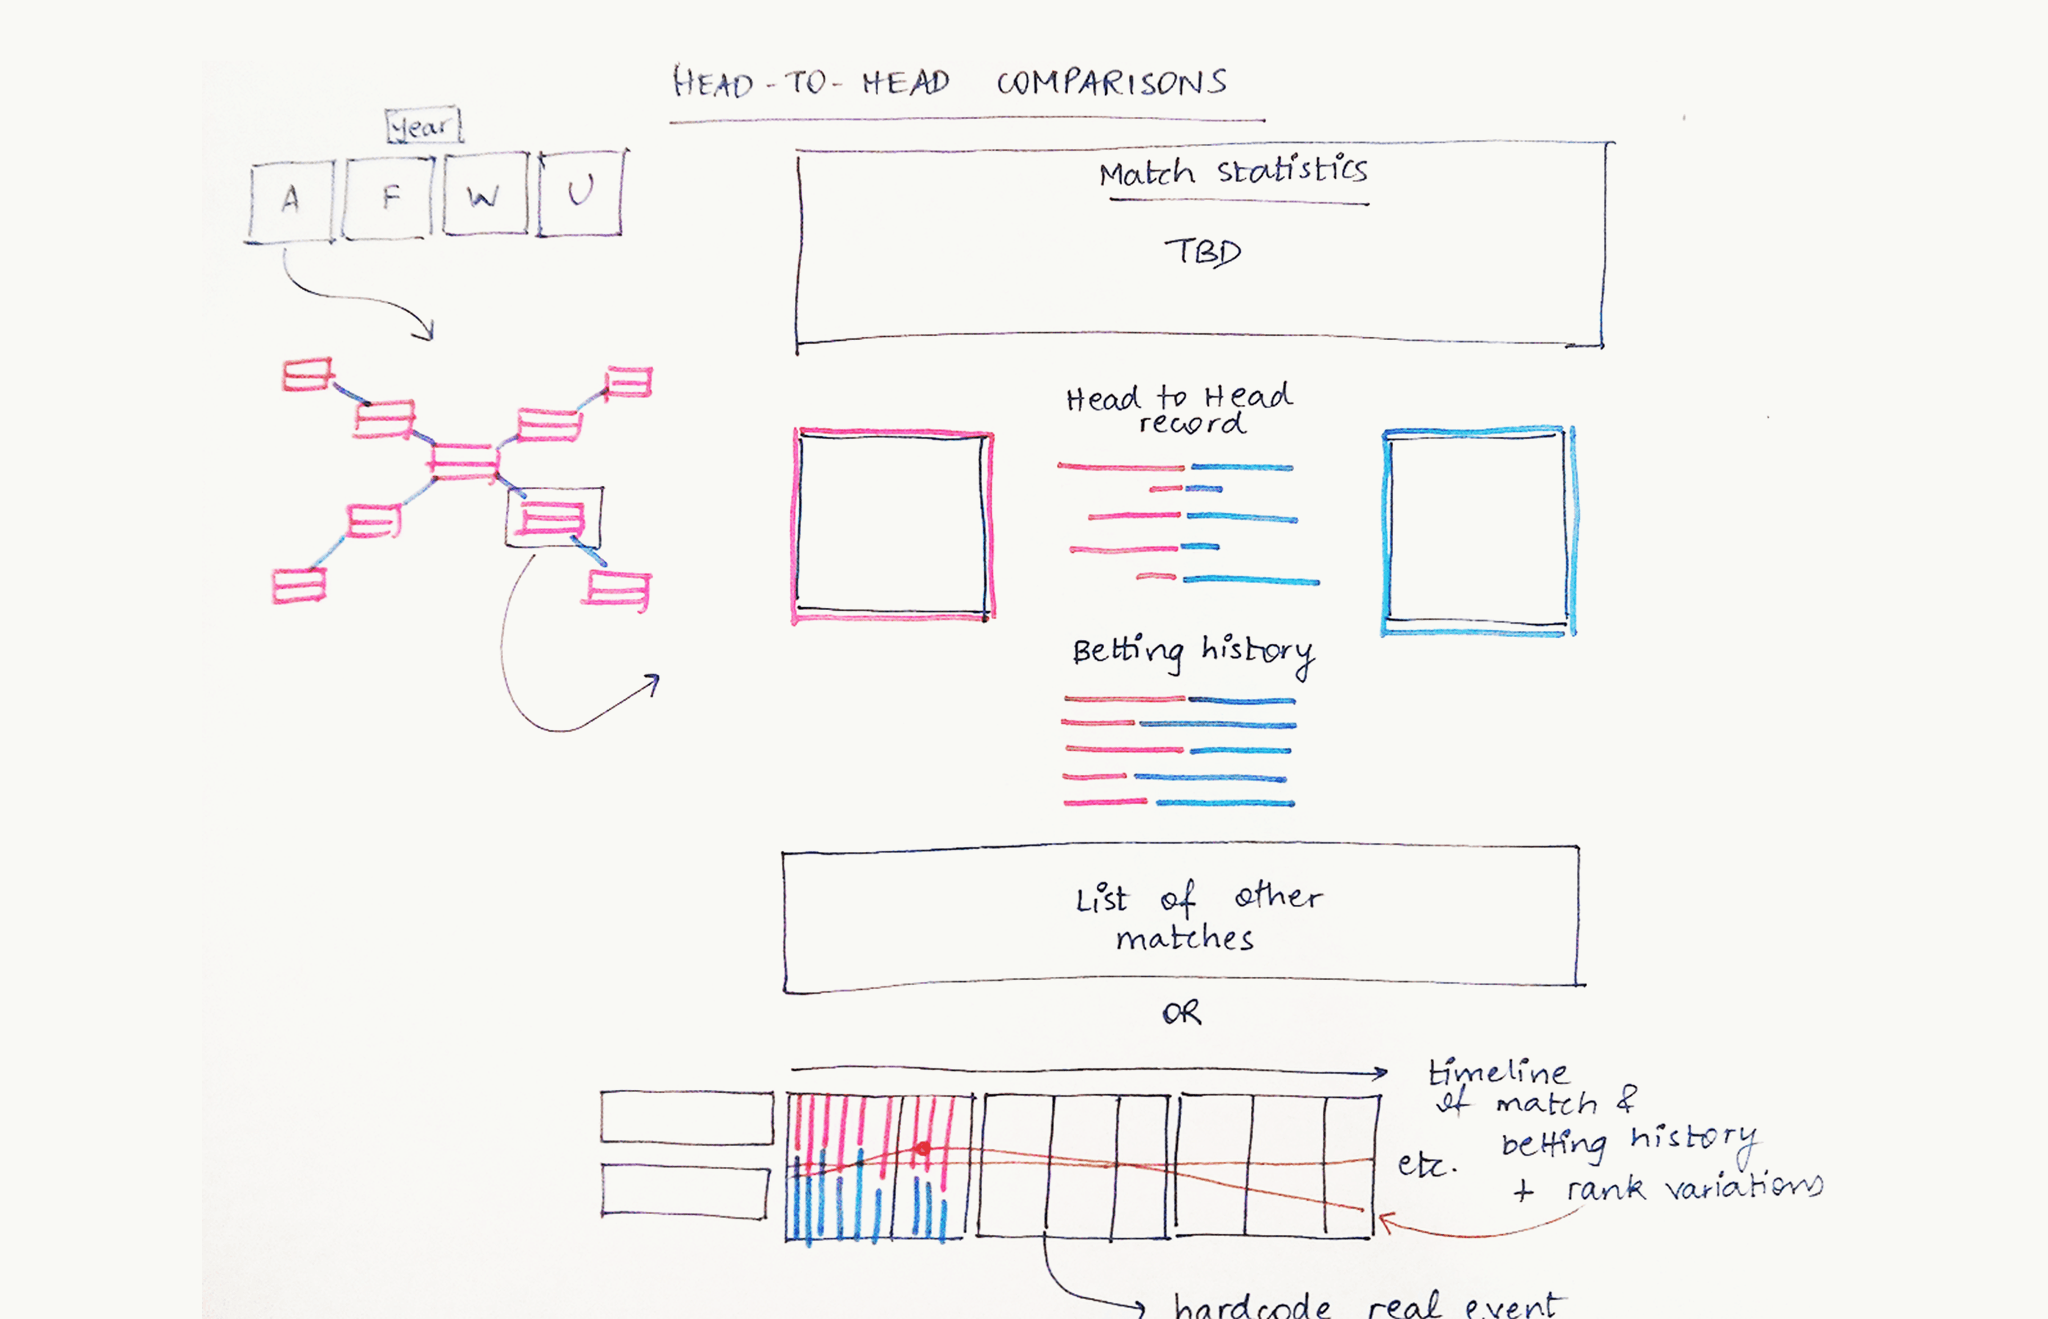 HEAD-TO-HEAD COMPARISONS
Year
A F W U
Match statistics
TBD
Head to Head
record
Betting history
List of other
matches
OR
timeline
of match &
betting history
+ rank variations
etc.
hardcode real event